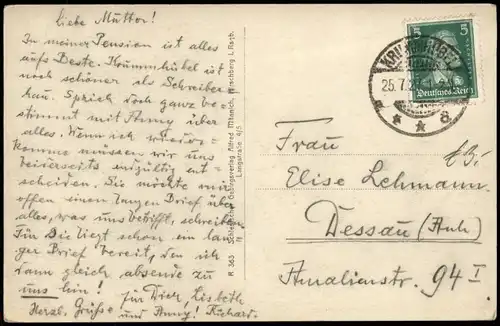 Liebe Mutter!
In meiner Pension ist alles
aufs Beste. Krummhübel ist
noch schöner als Schreiber
hau. Sprich doch ganz be
stimmt mit Anny über
alles. Wenn ich wieder
komme müssen wir uns
beiderseits endgültig ent
scheiden. Sie möchte mir
offen einen langen Brief über
alles, was uns betrifft, schreiben.
Für Sie liegt schon ein lan
ger Brief bereit, den ich
dann gleich absende zu
uns hin! Für Dich, Lisbeth
Herzl. Grüße und Anny! Richard.
R 363 Schlesischer Gebirgsverlag Alfred Hirschberg i. Rsgb.
Langstraße 4/5
5 5
Deutsches Reich
KRUMMHÜBEL
25.7.
* * a
Frau
Elise Lehmann
Dessau (Anh)
Amalienstr. 94 I